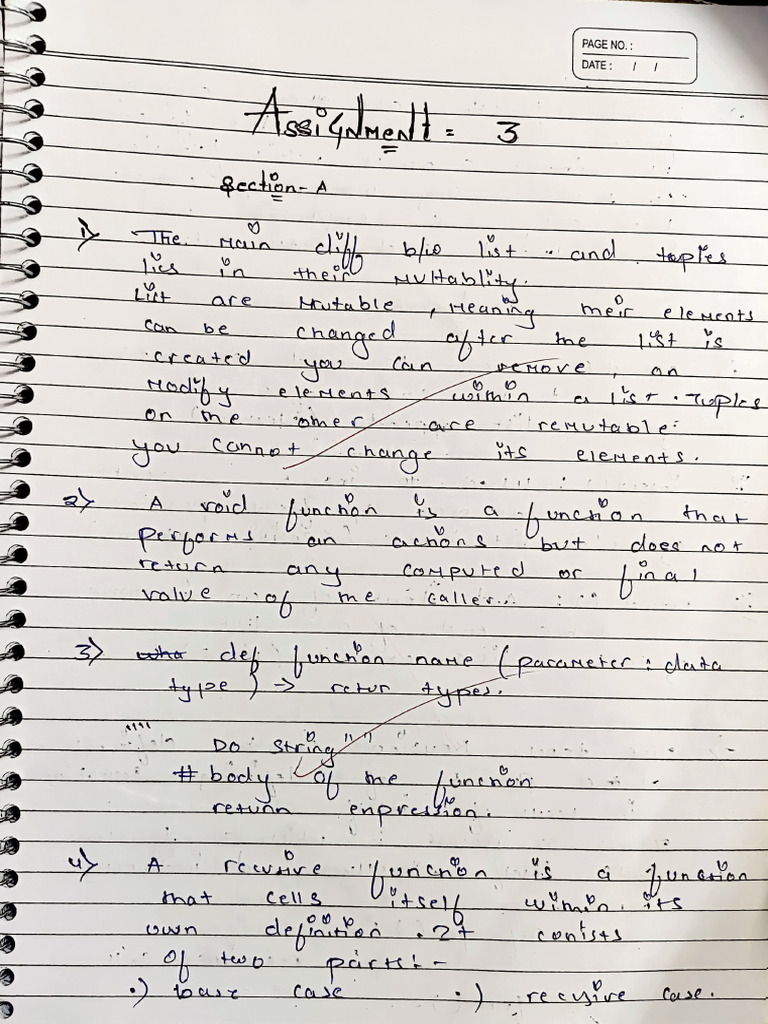 PAGE NO. :
DATE : / /
Assignment = 3
Section - A
1) The main diff b/w list and tuples
lies in their multability.
List are mutable, meaning their elements
can be changed after the list is
created you can remove, on
modify elements within a list. Tuples
on the other are remutable.
you cannot change its elements.
2) A void function is a function that
performs an actions but does not
return any computed or final
value of the caller.
3) def function name (parameter : data
type) → retur types.
"""" Do string """
# body of the function
return enpression.
4) A recusive function is a function
that cells itself within its
own definition. It conists
of two parts :-
•) base case •) recusive case.